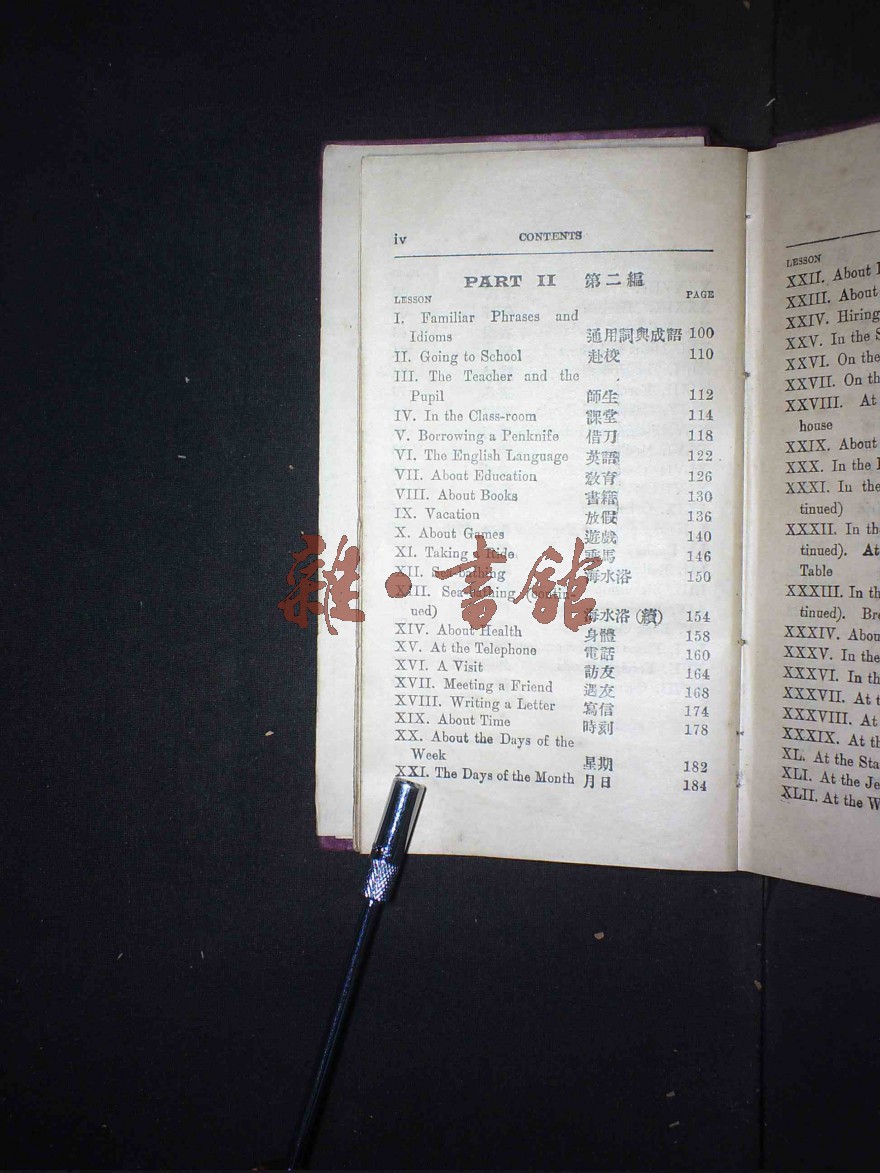 iv CONTENTS
PART II 第二編
LESSON PAGE
I. Familiar Phrases and
Idioms 通用詞與成語 100
II. Going to School 赴校 110
III. The Teacher and the
Pupil 師生 112
IV. In the Class-room 課堂 114
V. Borrowing a Penknife 借刀 118
VI. The English Language 英語 122
VII. About Education 敎育 126
VIII. About Books 書籍 130
IX. Vacation 放假 136
X. About Games 遊戲 140
XI. Taking a Ride 乘馬 146
XII. Sea-bathing 海水浴 150
XIII. Sea-bathing (contin-
ued) 海水浴 (續) 154
XIV. About Health 身體 158
XV. At the Telephone 電話 160
XVI. A Visit 訪友 164
XVII. Meeting a Friend 遇友 168
XVIII. Writing a Letter 寫信 174
XIX. About Time 時刻 178
XX. About the Days of the
Week 星期 182
XXI. The Days of the Month 月日 184
雜·書館
LESSON
XXII. About
XXIII. About
XXIV. Hiring
XXV. In the
XXVI. On the
XXVII. On
XXVIII. At
house
XXIX. About
XXX. In the
XXXI. In the
tinued)
XXXII. In
tinued). At
Table
XXXIII. In
tinued).
XXXIV.
XXXV. In the
XXXVI. In
XXXVII. At
XXXVIII. At
XXXIX. At
XL. At the
XLI. At the
XLII. At the